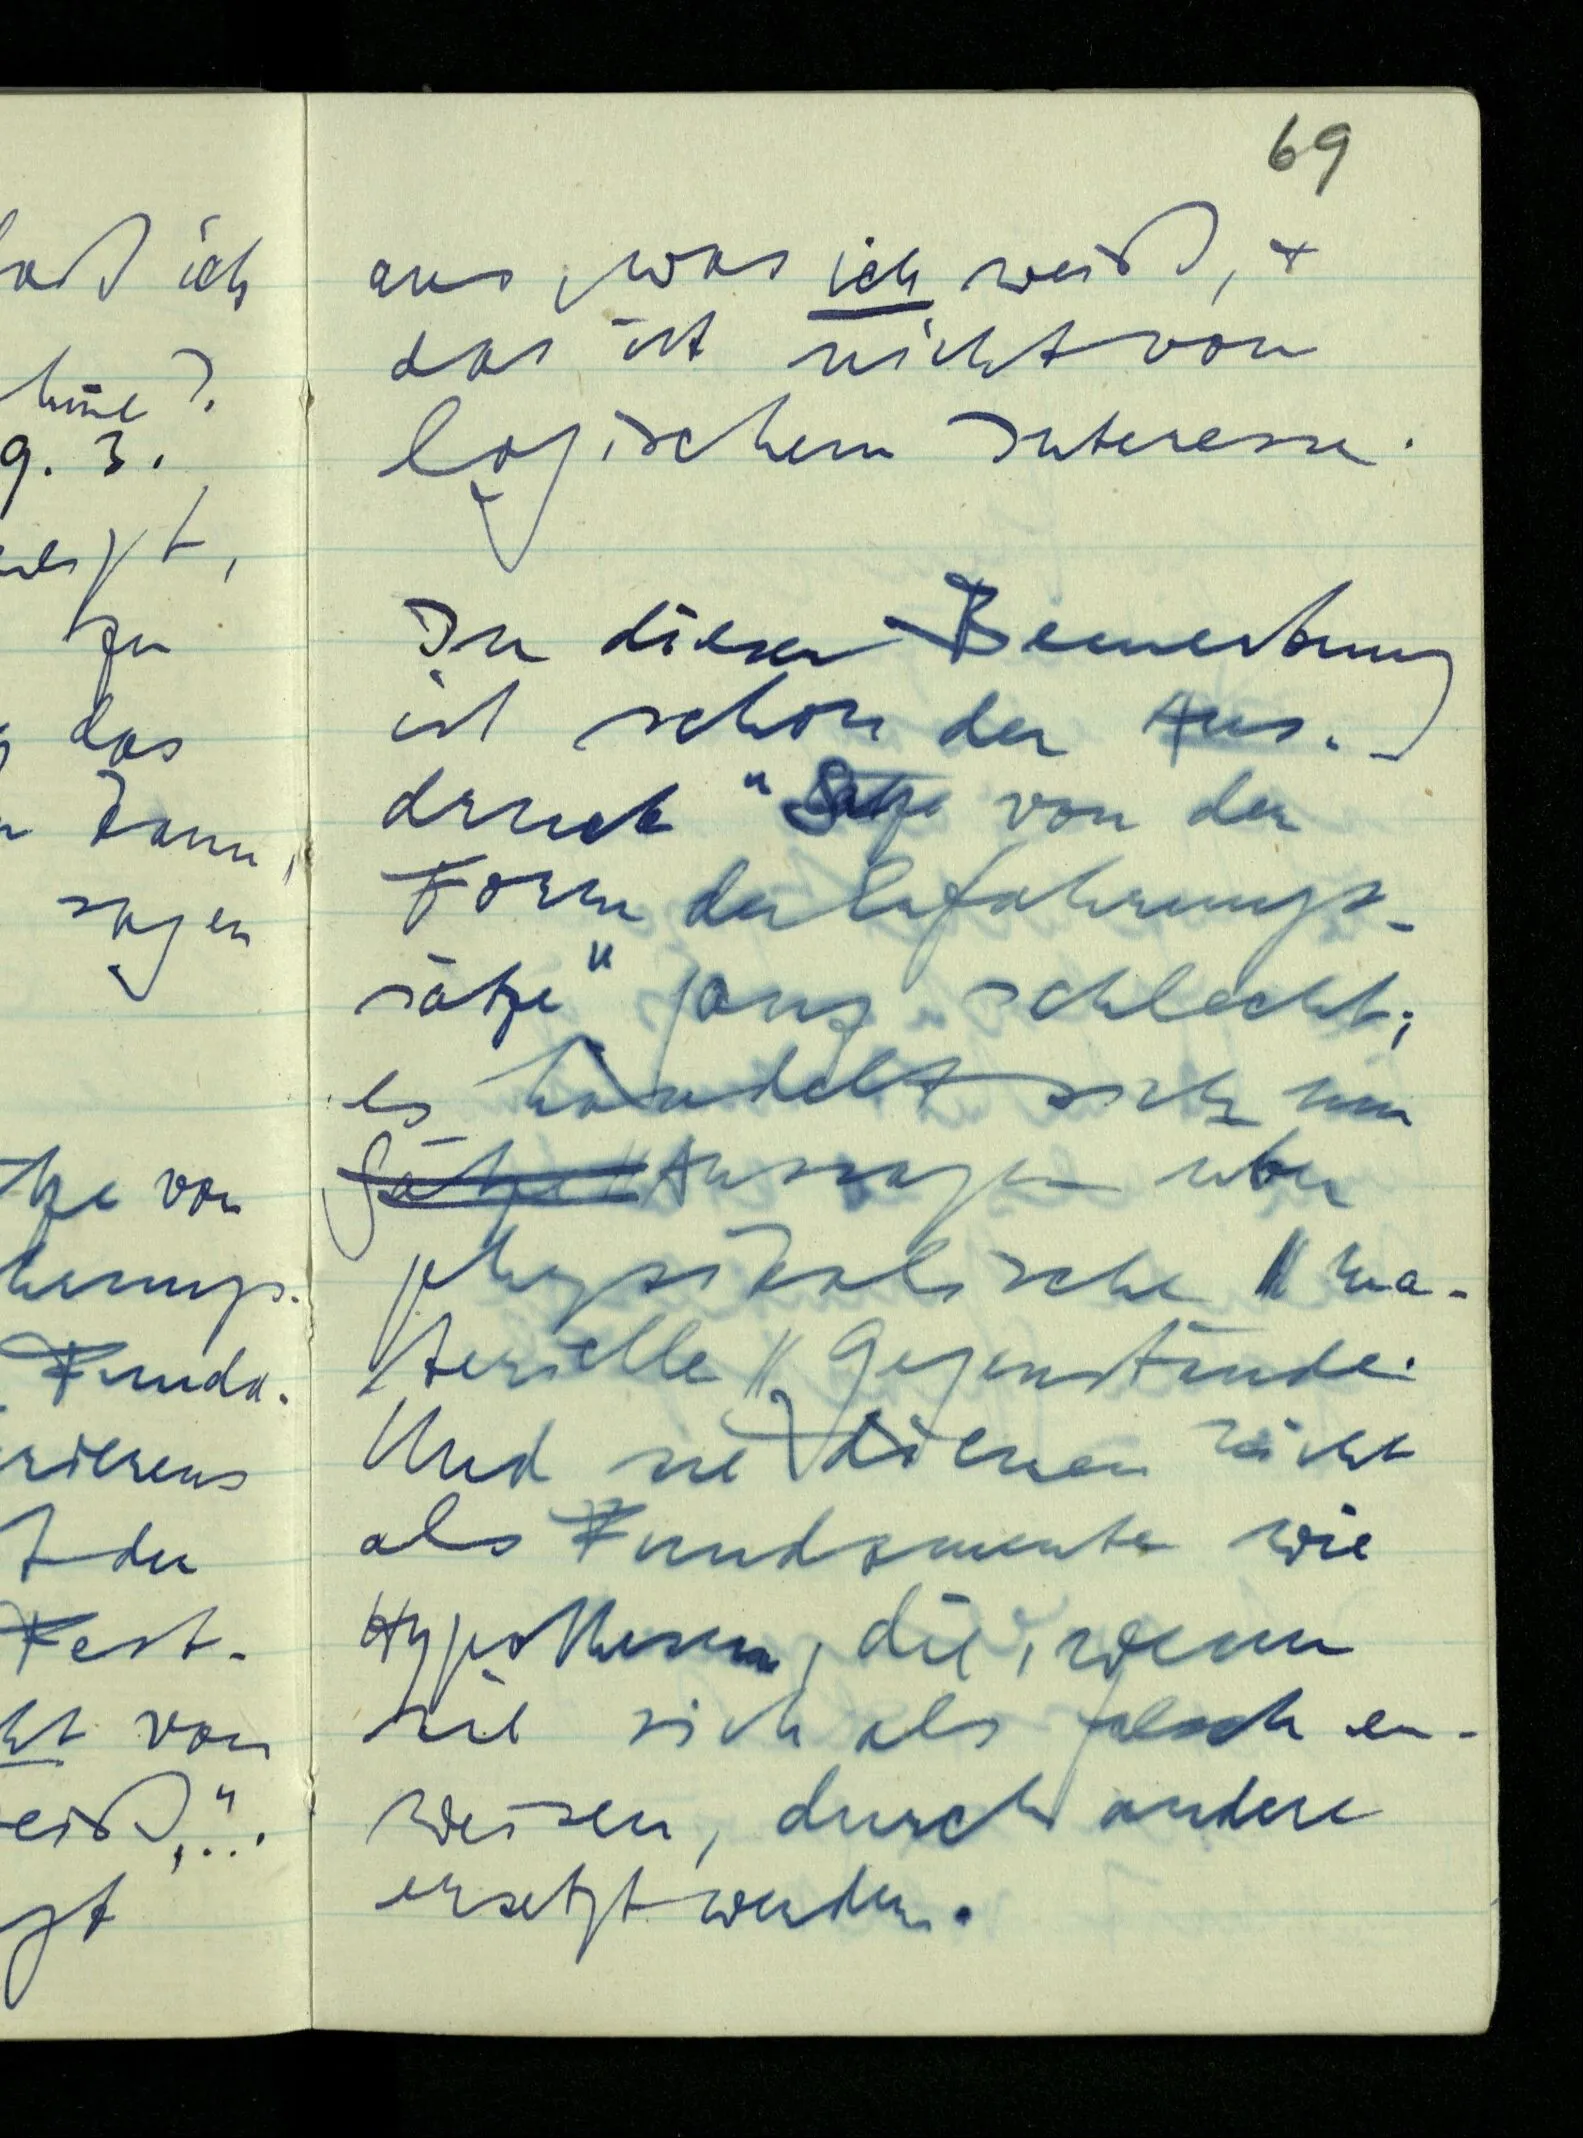 69
aß ich
hine?
9.3.
zu
das
dann,
sagen
tze von
herungs-
Funda-
t der
Fest-
von
eiß,"..
aus, was ich weiß, +
das ist nicht von
logischem Interesse.
In dieser Bemerkung
ist schon der Aus-
druck "Sätze von der
Form der Erfahrungs-
sätze" ganz schlecht;
es handelt sich um
Sätze Aussagen über
physikalische // ma-
terielle // Gegenstände.
Und sie dienen nicht
als Fundamente wie
Hypothesen, die, wenn
sie sich als falsch er-
weisen, durch andere
ersetzt werden.